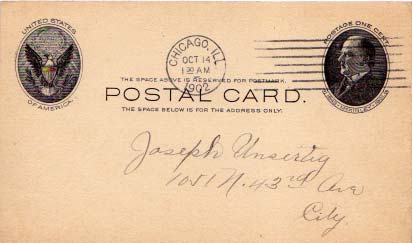 UNITED STATES
OF AMERICA.
CHICAGO, ILL.
OCT 14
1902
POSTAGE ONE CENT
THE SPACE ABOVE IS RESERVED FOR POSTMARK.
POSTAL CARD.
THE SPACE BELOW IS FOR THE ADDRESS ONLY.
Joseph
1051 N. 43rd Ave
City.